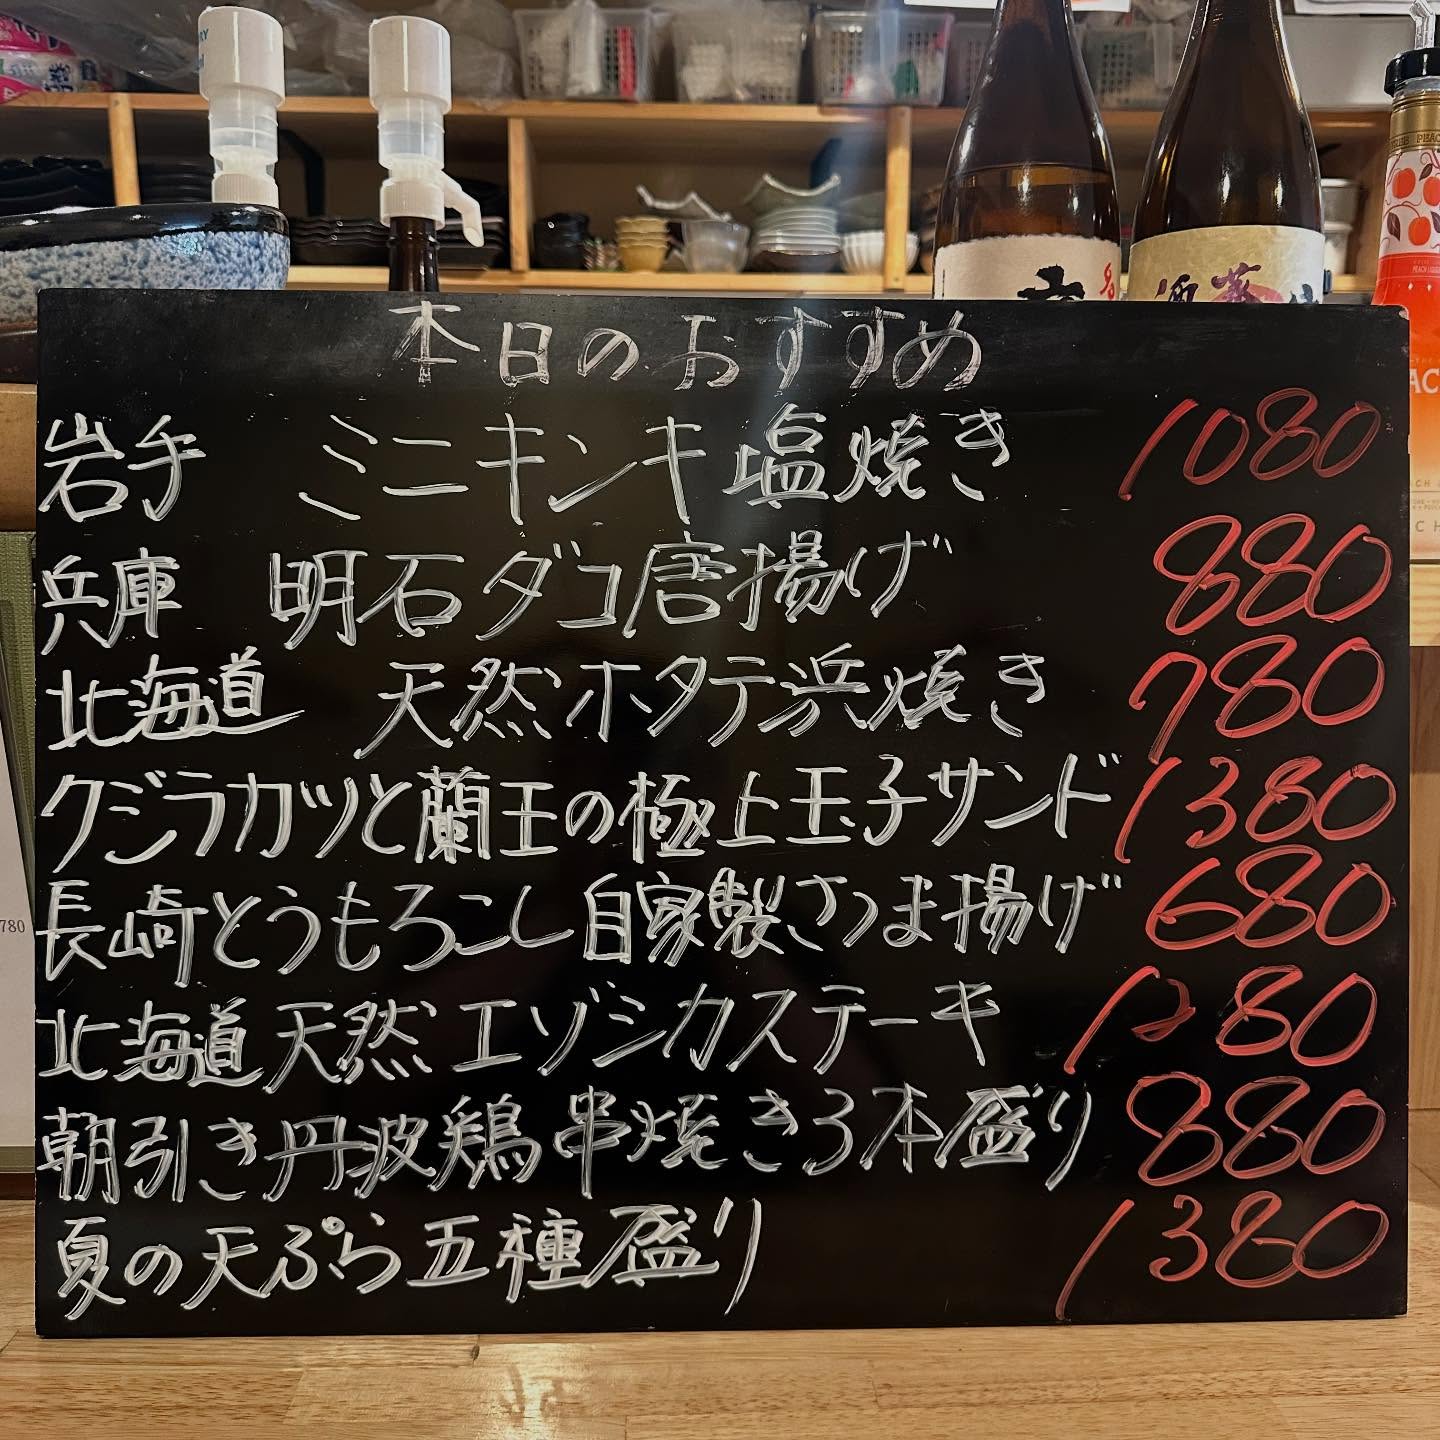 本日のおすすめ
岩手 ミニキンキ塩焼き 1080
兵庫 明石ダコ唐揚げ 880
北海道 天然ホタテ浜焼き 780
クジラカツと蘭王の極上玉子サンド 1380
長崎とうもろこし自家製さつま揚げ 680
北海道天然エゾシカステーキ 1280
朝引き丹波鶏串焼き3本盛り 880
夏の天ぷら五種盛り 1380
780
PEACH